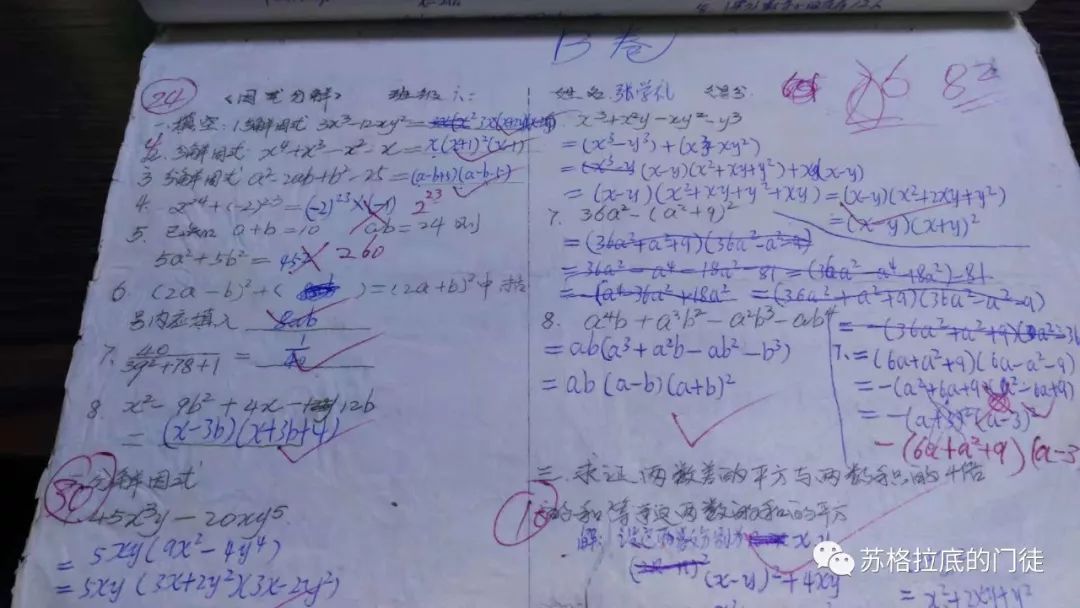 B卷
24 《因式分解》 班级 六: 姓名 张学礼 得分 76 82
一 填空: 1. 分解因式 3x³-12xy²=
2. 分解因式 x⁴+x³-x²-x=x(x+1)²(x-1)
3 分解因式 a²-2ab+b²-25=(a-b+5)(a-b-5)
4. -2²⁴+(-2)²³=(-2)²³×(-1) 2²³
5. 已知 a+b=10 ab=24 则
5a²+5b²=452 260
6 (2a-b)²+( )=(2a+b)²中 括
号内应填入 8ab
7. 40/39²+78+1 = 1/40
8. x²-9b²+4x-12b
= (x-3b)(x+3b+4)
30 二 分解因式
45x³y-20xy⁵
= 5xy(9x²-4y⁴)
= 5xy(3x+2y²)(3x-2y²)
x³+x²y-xy²-y³
=(x³-y³)+(x²y-xy²)
=(x-y)(x²+xy+y²)+xy(x-y)
=(x-y)(x²+xy+y²+xy)=(x-y)(x²+2xy+y²)
=(x-y)(x+y)²
7. 36a²-(a²+9)²
=(36a²+a²+9)(36a²-a²-9)
=36a²-a⁴-18a²-81=(36a²-a⁴-18a²)-81
=-(a⁴-36a²+18a² =(36a²+a²+9)(36a²-a²-9)
8. a⁴b+a³b²-a²b³-ab⁴
=ab(a³+a²b-ab²-b³)
=ab(a-b)(a+b)²
7. =(6a+a²+9)(6a-a²-9)
=-(a²+6a+9)(a²-6a+9)
=-(a+3)²(a-3)²
-(6a+a²+9)(a-3
三. 求证: 两数差的平方与两数积的4倍
的和等于这两数的和的平方
解: 设这两数分别为 x y
(x-y)²+4xy
= x²+2xy+y²
苏格拉底的门徒